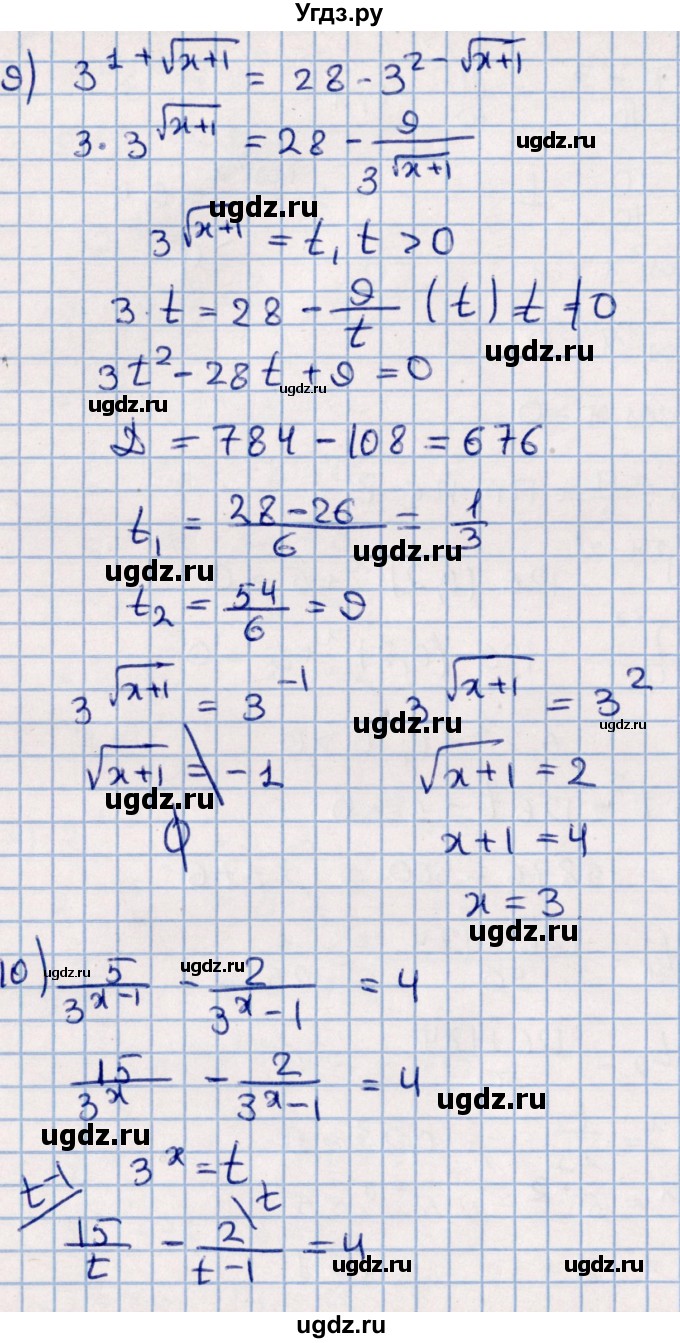 Угдз.ру
9) 3^{1+√(x+1)} = 28 - 3^{2-√(x+1)}
3 · 3^{√(x+1)} = 28 - 9/3^{√(x+1)}
ugdz.ru
ugdz.ru
3^{√(x+1)} = t, t > 0
3·t = 28 - 9/t (t) t ≠ 0
ugdz.ru
3t² - 28t + 9 = 0
ugdz.ru ugdz.ru
D = 784 - 108 = 676
t₁ = (28-26)/6 = 1/3
ugdz.ru ugdz.ru
t₂ = 54/6 = 9
3^{√(x+1)} = 3^{-1} 3^{√(x+1)} = 3²
ugdz.ru ugdz.ru
√(x+1) = -1 √(x+1) = 2
ugdz.ru
∅ x+1 = 4
x = 3
ugdz.ru
10) 5/3^{x-1} - 2/(3^x - 1) = 4
ugdz.ru ugdz.ru
15/3^x - 2/(3^x - 1) = 4
ugdz.ru
ugdz.ru
t-1 3^x = t
15/t - 2/(t-1) \t = 4
ugdz.ru ugdz.ru
ugdz.ru